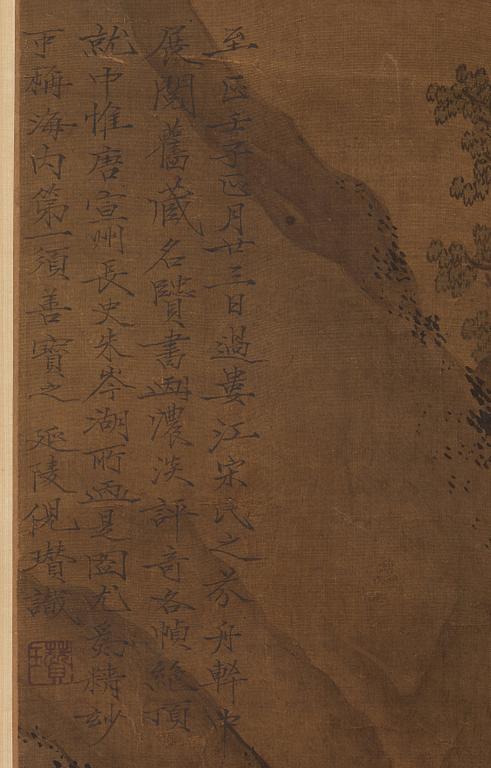 至正壬子正月廿三日過婁江宋氏之芥舟軒中
展閱舊藏名賢書画濃淡評奇各幀絶頂
就中惟唐宣州長史朱岑湖所画是圖尤爲精妙
可稱海内第一須善寳之 延陵倪瓚識